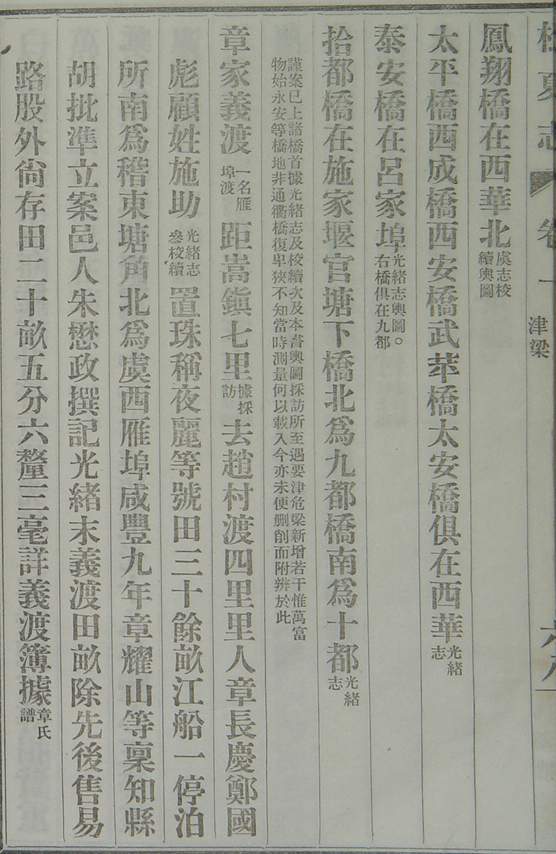 夏志 卷一 津梁
鳳翔橋在西華北虞志校續輿圖
太平橋西成橋西安橋武苹橋太安橋俱在西華光緒志
泰安橋在呂家埠光緒志輿圖。右橋俱在九都
拾都橋在施家堰官塘下橋北爲九都橋南爲十都光緒志
謹案已上諸橋首據光緒志及校續次及本書輿圖採訪所至遇要津危梁新增若干惟萬富
物始永安等橋地非通衢橋復卑狹不知當時測量何以載入今亦未便删削面附辨於此
章家義渡一名雁埠渡距嵩鎭七里據採訪去趙村渡四里里人章長慶鄭國
彪顧姓施助光緒志叅校續置珠稱夜麗等號田三十餘畝江船一停泊
所南爲稽東塘角北爲虞西雁埠咸豐九年章耀山等稟知縣
胡批準立案邑人朱懋政撰記光緒末義渡田畝除先後售易
路股外尙存田二十畝五分六釐三毫詳義渡簿據章氏譜